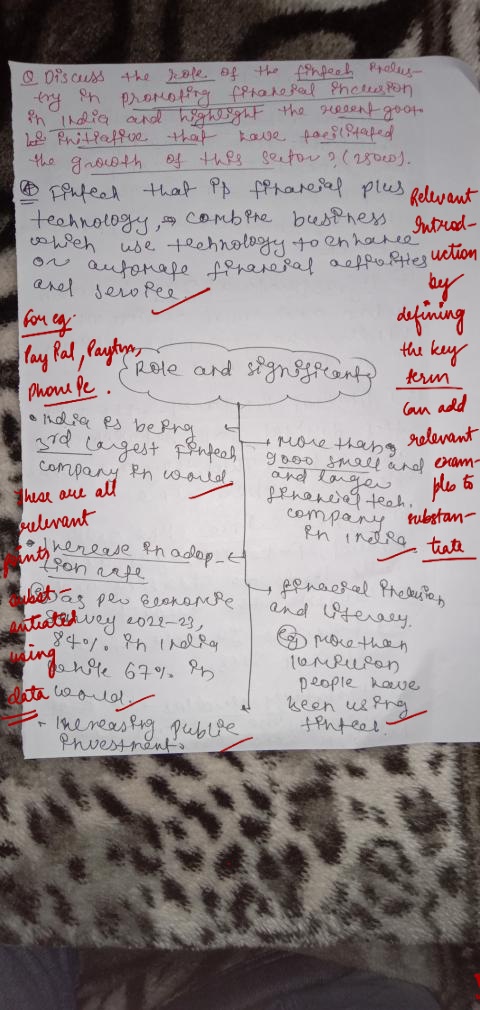 Q Discuss the role of the fintech Indus-
try in promoting financial inclusion
in India and highlight the recent govt
initiative that have facilitated
the growth of this sector? (250w).
Fintech that is financial plus
technology, combine business
which use technology to enhance
or automate financial activities
and service.
Relevant
Introd-
uction
by
defining
the key
term
can add
relevant
exam-
ples to
substan-
tiate
For eg.
PayPal, Paytm,
PhonePe.
Role and significant
• India is being
3rd largest Fintech
company in world
These are all
relevant
points
subst-
antiated
using
data
• Increase in adop-
tion rate
as per Economic
Survey 2022-23,
84% in India
while 67% in
world.
• Increasing public
investment.
more than
9000 small and
and larger
financial tech.
company
in India
financial Inclusion
and literacy.
eg more than
10 million
people have
been using
fintech.